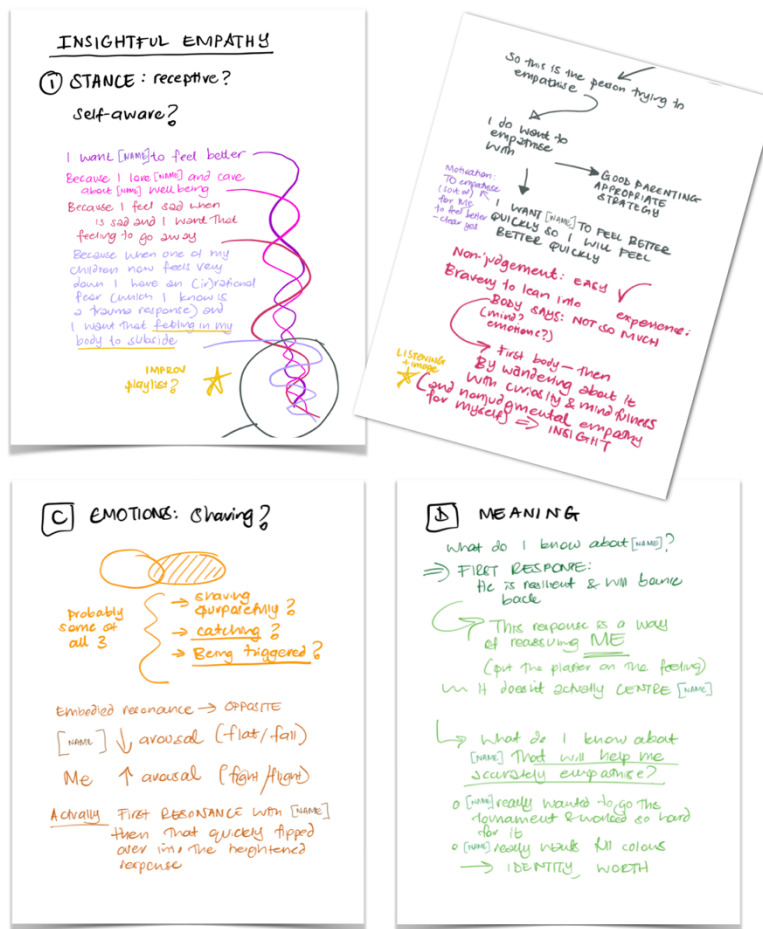 INSIGHTFUL EMPATHY
① STANCE: receptive?
self-aware?
I want [NAME] to feel better
Because I love [NAME] and care
about [NAME] wellbeing
Because I feel sad when
is sad and I want that
feeling to go away
Because when one of my
children now feels very
down I have an (ir)rational
fear (which I know is
a trauma response) and
I want that feeling in my
body to subside
IMPROV
playlist?
So this is the person trying to
empathise
I do want to
empathise
with
GOOD PARENTING
APPROPRIATE
STRATEGY
Motivation:
TO empathise
(sort of)
for me
to feel better
- clear yes
I WANT [NAME] TO FEEL BETTER
QUICKLY SO I WILL FEEL
BETTER QUICKLY
Non-judgement: EASY
Bravery to lean into experience:
BODY SAYS: NOT SO MUCH
(mind?
emotions?)
First body — then
By wandering about it
with curiosity & mindfulness
(and nonjudgmental empathy
for myself) => INSIGHT
LISTENING
+ image
C EMOTIONS: Sharing?
probably
some of
all 3
→ sharing
purposefully?
→ catching?
→ Being triggered?
Embodied resonance → OPPOSITE
[NAME] ↓ arousal (flat/fall)
Me ↑ arousal (fight/flight)
Actually FIRST RESONANCE with [NAME]
then that quickly flipped
over into the heightened
response
D MEANING
What do I know about [NAME]?
=> FIRST RESPONSE:
He is resilient & will bounce
back
This response is a way
of reassuring ME
(put the plaster on the feeling)
It doesn't actually CENTRE [NAME]
What do I know about
[NAME] That will help me
accurately empathise?
o [NAME] really wanted to go this
tournament & worked so hard
for it
o [NAME] really wants full colours
→ IDENTITY, WORTH